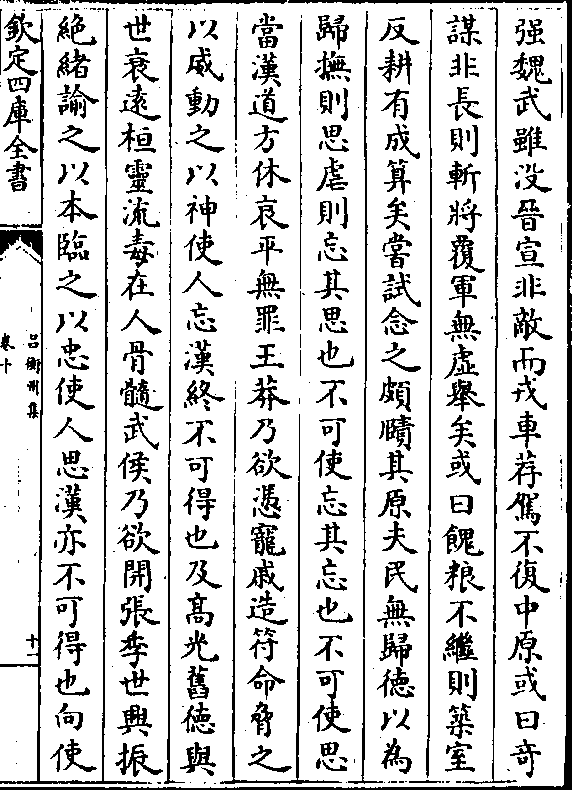 强魏武雖没晉宣非敵而戎車荐駕不復中原或曰竒
謀非長則斬將覆軍無虛舉矣或曰餽粮不繼則築室
反耕有成算矣嘗試念之頗賾其原夫民無歸徳以為
歸撫則思虐則忘其思也不可使忘其忘也不可使思
當漢道方休哀平無罪王莽乃欲憑寵戚造符命脅之
以威動之以神使人忘漢終不可得也及髙光舊徳與
世衰逺桓靈流毒在人骨髓武侯乃欲開張季世興振
絶緒諭之以本臨之以忠使人思漢亦不可得也向使
欽定四庫全書
吕衡州集
卷十
十一